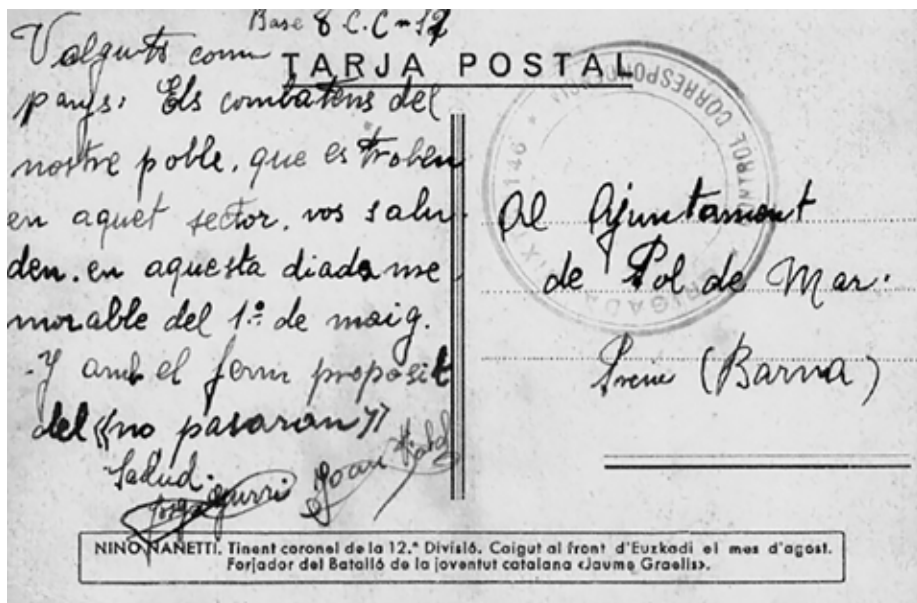 Base 8 C.C nº 12
Valguts com
panys: Els combatens del
nostre poble, que es troben
en aquet sector, vos salu-
den, en aquesta diada me
morable del 1º de maig.
-Y amb el ferm proposit
del «no pasaran»
Salud.
Joan
TARJA POSTAL
BRIGADA MIXTA 146 * CONTROL CORRESPONDENCIA
Al Ajuntament
de Pol de Mar.
(Barna)
NINO NANETTI. Tinent coronel de la 12.ª Divisió. Caigut al front d'Euzkadi el mes d'agost.
Forjador del Batalló de la joventut catalana «Jaume Graells».